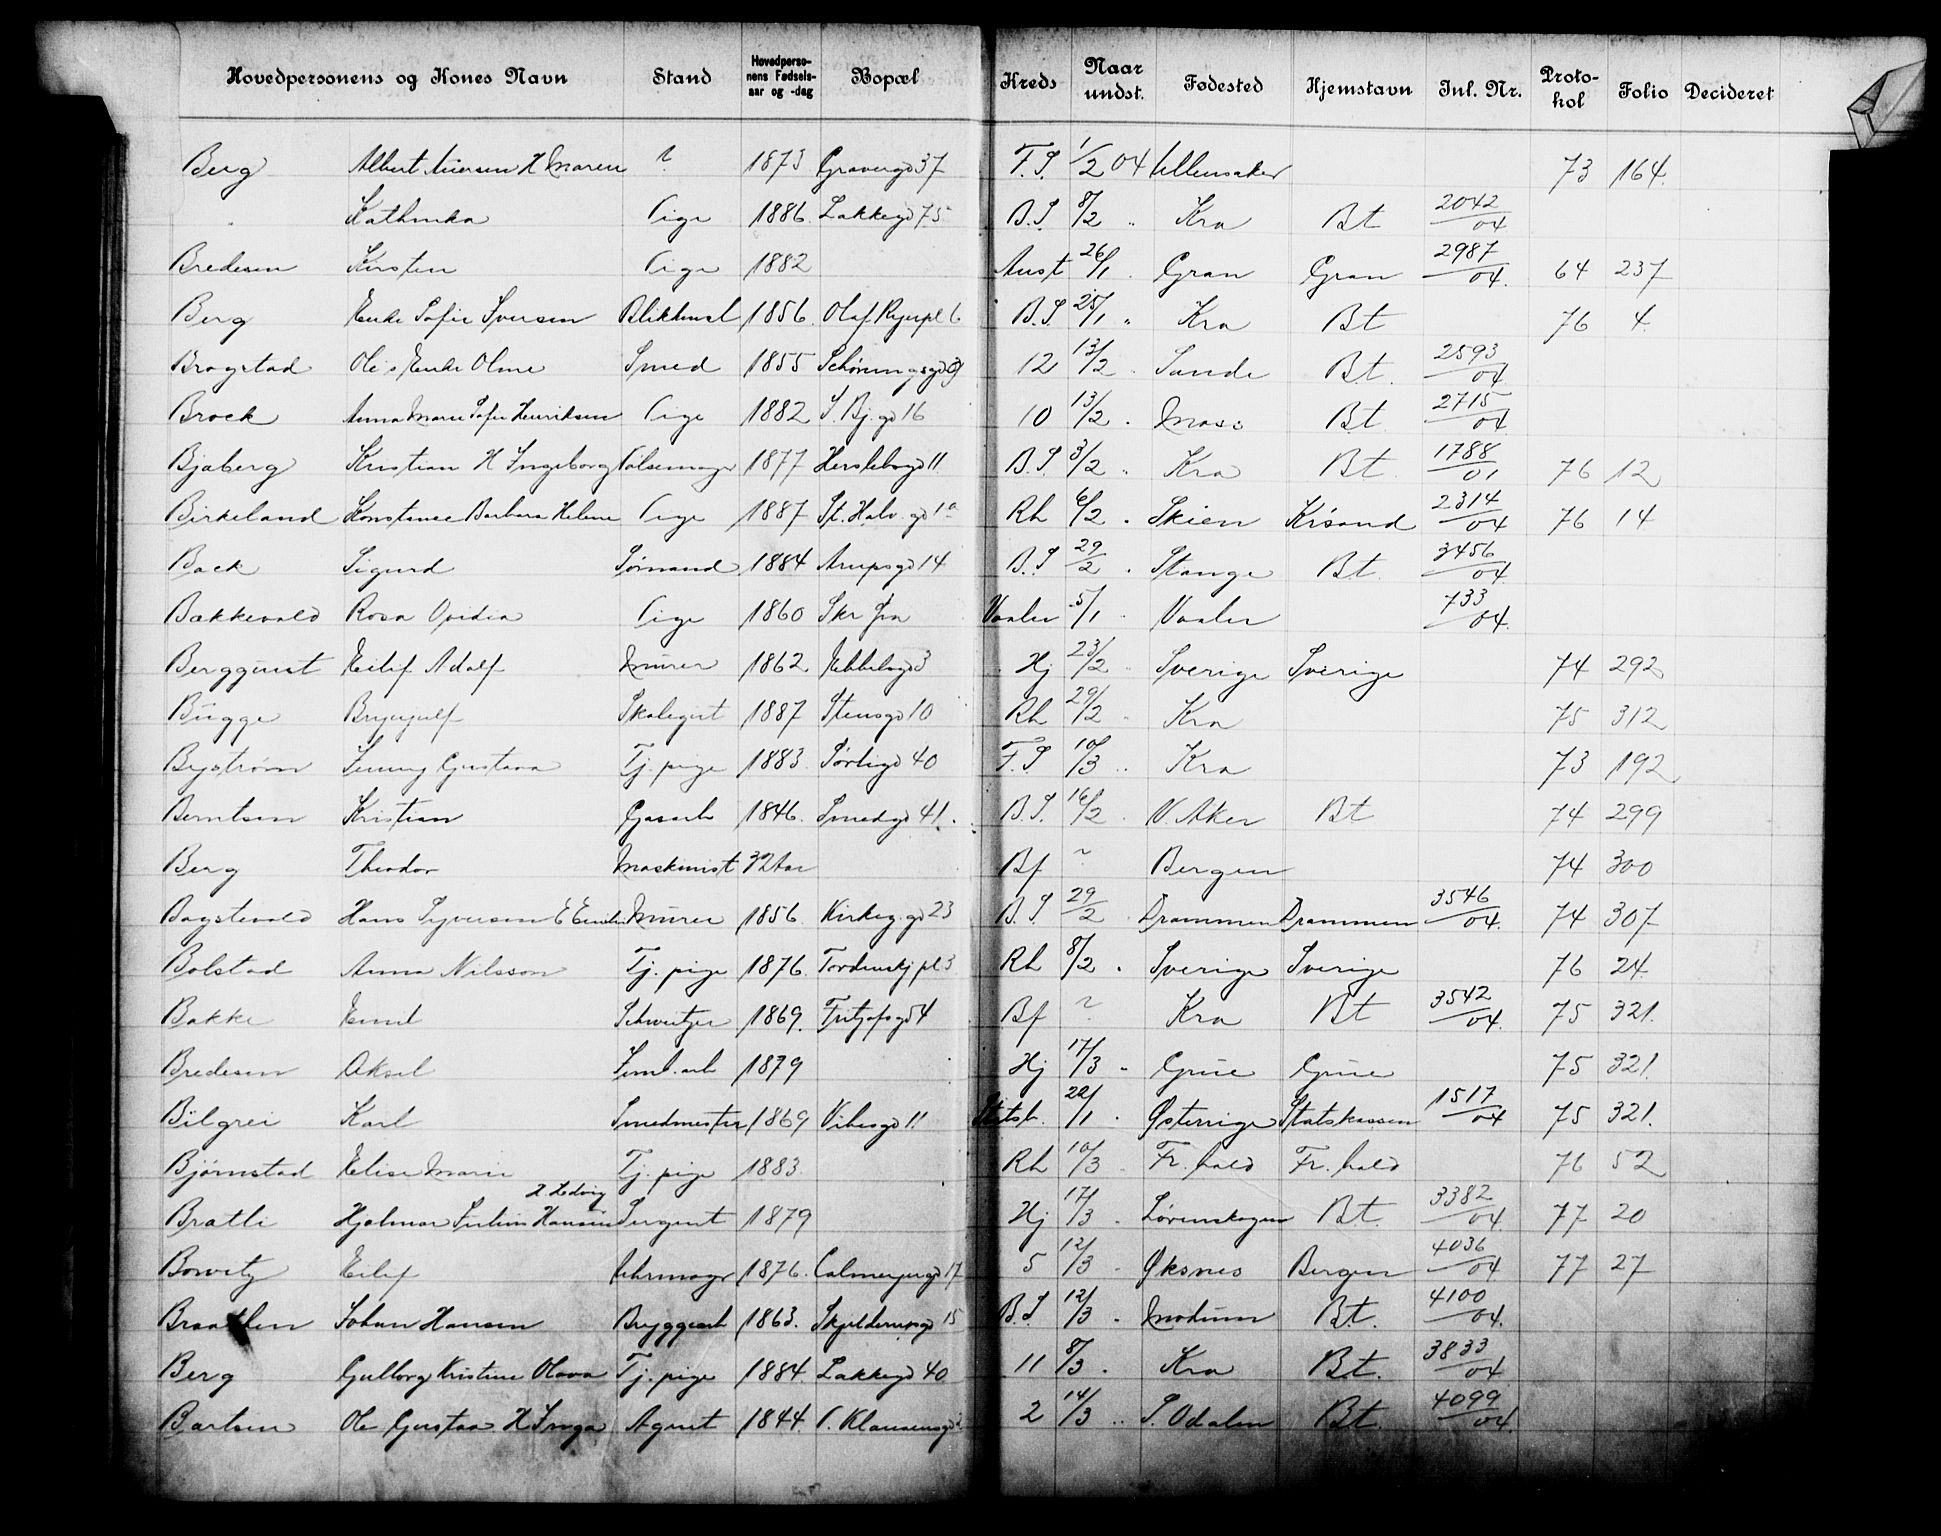 Hovedpersonens og Kones Navn Stand Hovedperso-nens Fødsels-aar og -dag Bopæl Kreds Naar undst. Fødested Hjemstavn Inl. Nr. Proto-kol Folio Decideret
Berg Albert Iversen H Maren ? 1873 Gravergd 37 F.S. 1/2 04 Ullensaker 73 164.
" Kathinka Pige 1886. Lakkegd 75 B.S. 8/2 " Kra Bt 2042/04
Bredesen Kirsten Pige 1882 Aust 26/1 . Gran Gran 2987/04. 64 237
Berg Enke Sofie Iversen Blikkensl 1856. Olaf Ryespl 6 B.S. 25/1 " Kra Bt 76 4.
Brogstad Ole's Enke Oline Smed 1855 Schøningsgd 12 13/2 . Sande Bt. 2593/04
Brock Anna Marie Sofie Henriksen Pige 1882 S. Bj. gd 16 10 13/2 . Moss Bt. 2715/04
Bjaberg Kristian H Ingeborg Pølsemager 1877 Herslebsgd 11 B.S. 3/2 " Kra Bt 1788/01 76 12
Birkeland Konstanse Barbara Helene Pige 1887 St. Halv. gd 1a Rh 6/2 . Skien Krsand 2314/04 76 14
Back Sigurd Sømand 1884 Arupsgd 14 B.S 29/2 . Stange Bt. 3456/04
Bakkevold Rosa Ovidia Pige 1860 Vaaler 5/1 . Vaaler 733/04.
Bergquist Eilif Adolf Murer 1862 3 Hj 23/2 . Sverige Sverige 74 292
Bugge Brynjulf Skolegut 1887 Stensgd 10 Rh 29/2 . Kra 75 312
Bystrøm Jenny Gustava Tj. pige 1883. Sørligd 40 F.S 10/3 .. Kra 73 192
Berntsen Kristian Gasarb 1846. Smedgd 41. B.S. 16/2 . V. Aker Bt 74 299
Berg Theodor Maskinist 32 Aar Bf ? Bergen 74 300
Bogstevold Hans Syversen E Emilie Murer 1856. Kirkeg. gd 23 B.S 29/2 . Drammen Drammen 3546/04. 74 307
Bolstad Anna Nilsson Tj. pige 1876. Tordenskj pl 3 Rh 8/2 . Sverige Sverige 76 24.
Bakke Emil Schweitzer 1869. Fritjofsgd 4 Bf ? Kra Bt 3542/04. 75 321.
Bredesen Aksel arb 1879 Hj 17/3 . Grue Grue 75 321.
Bilgrei Karl Smedmester 1869 Vibesgd 11 Statsb. 22/1 . Østerrige Statskassen 1517/04 75 321.
Bjørnstad Elise Marie Tj. pige 1883. Rh 10/3 . Fr. hald Fr. hald 76 52
Bratli Hjalmar Julius Hansen H Hedvig Sergent 1879 Hj 17/3 . Lørenskogen Bt. 3382/04. 77 20
Borvitz Eilif Uhrmager 1876. Calmeyersgd 17 5 12/3 . Øksnes Bergen 4036/04 77 27
Braathen Johan Hansen Bryggearb 1863. Skjelderupsgd 15 B.S. 12/3 . Modum Bt. 4100/04.
Berg Gulborg Kristine Olava Tj. pige 1884. Lakkegd 40 11 8/3 . Kra Bt. 3833/04
Bartsen Ole Gustav H Inga Agent 1844. C. Klausensgd 2 14/3 .. S. Odalen Bt. 4099/04.